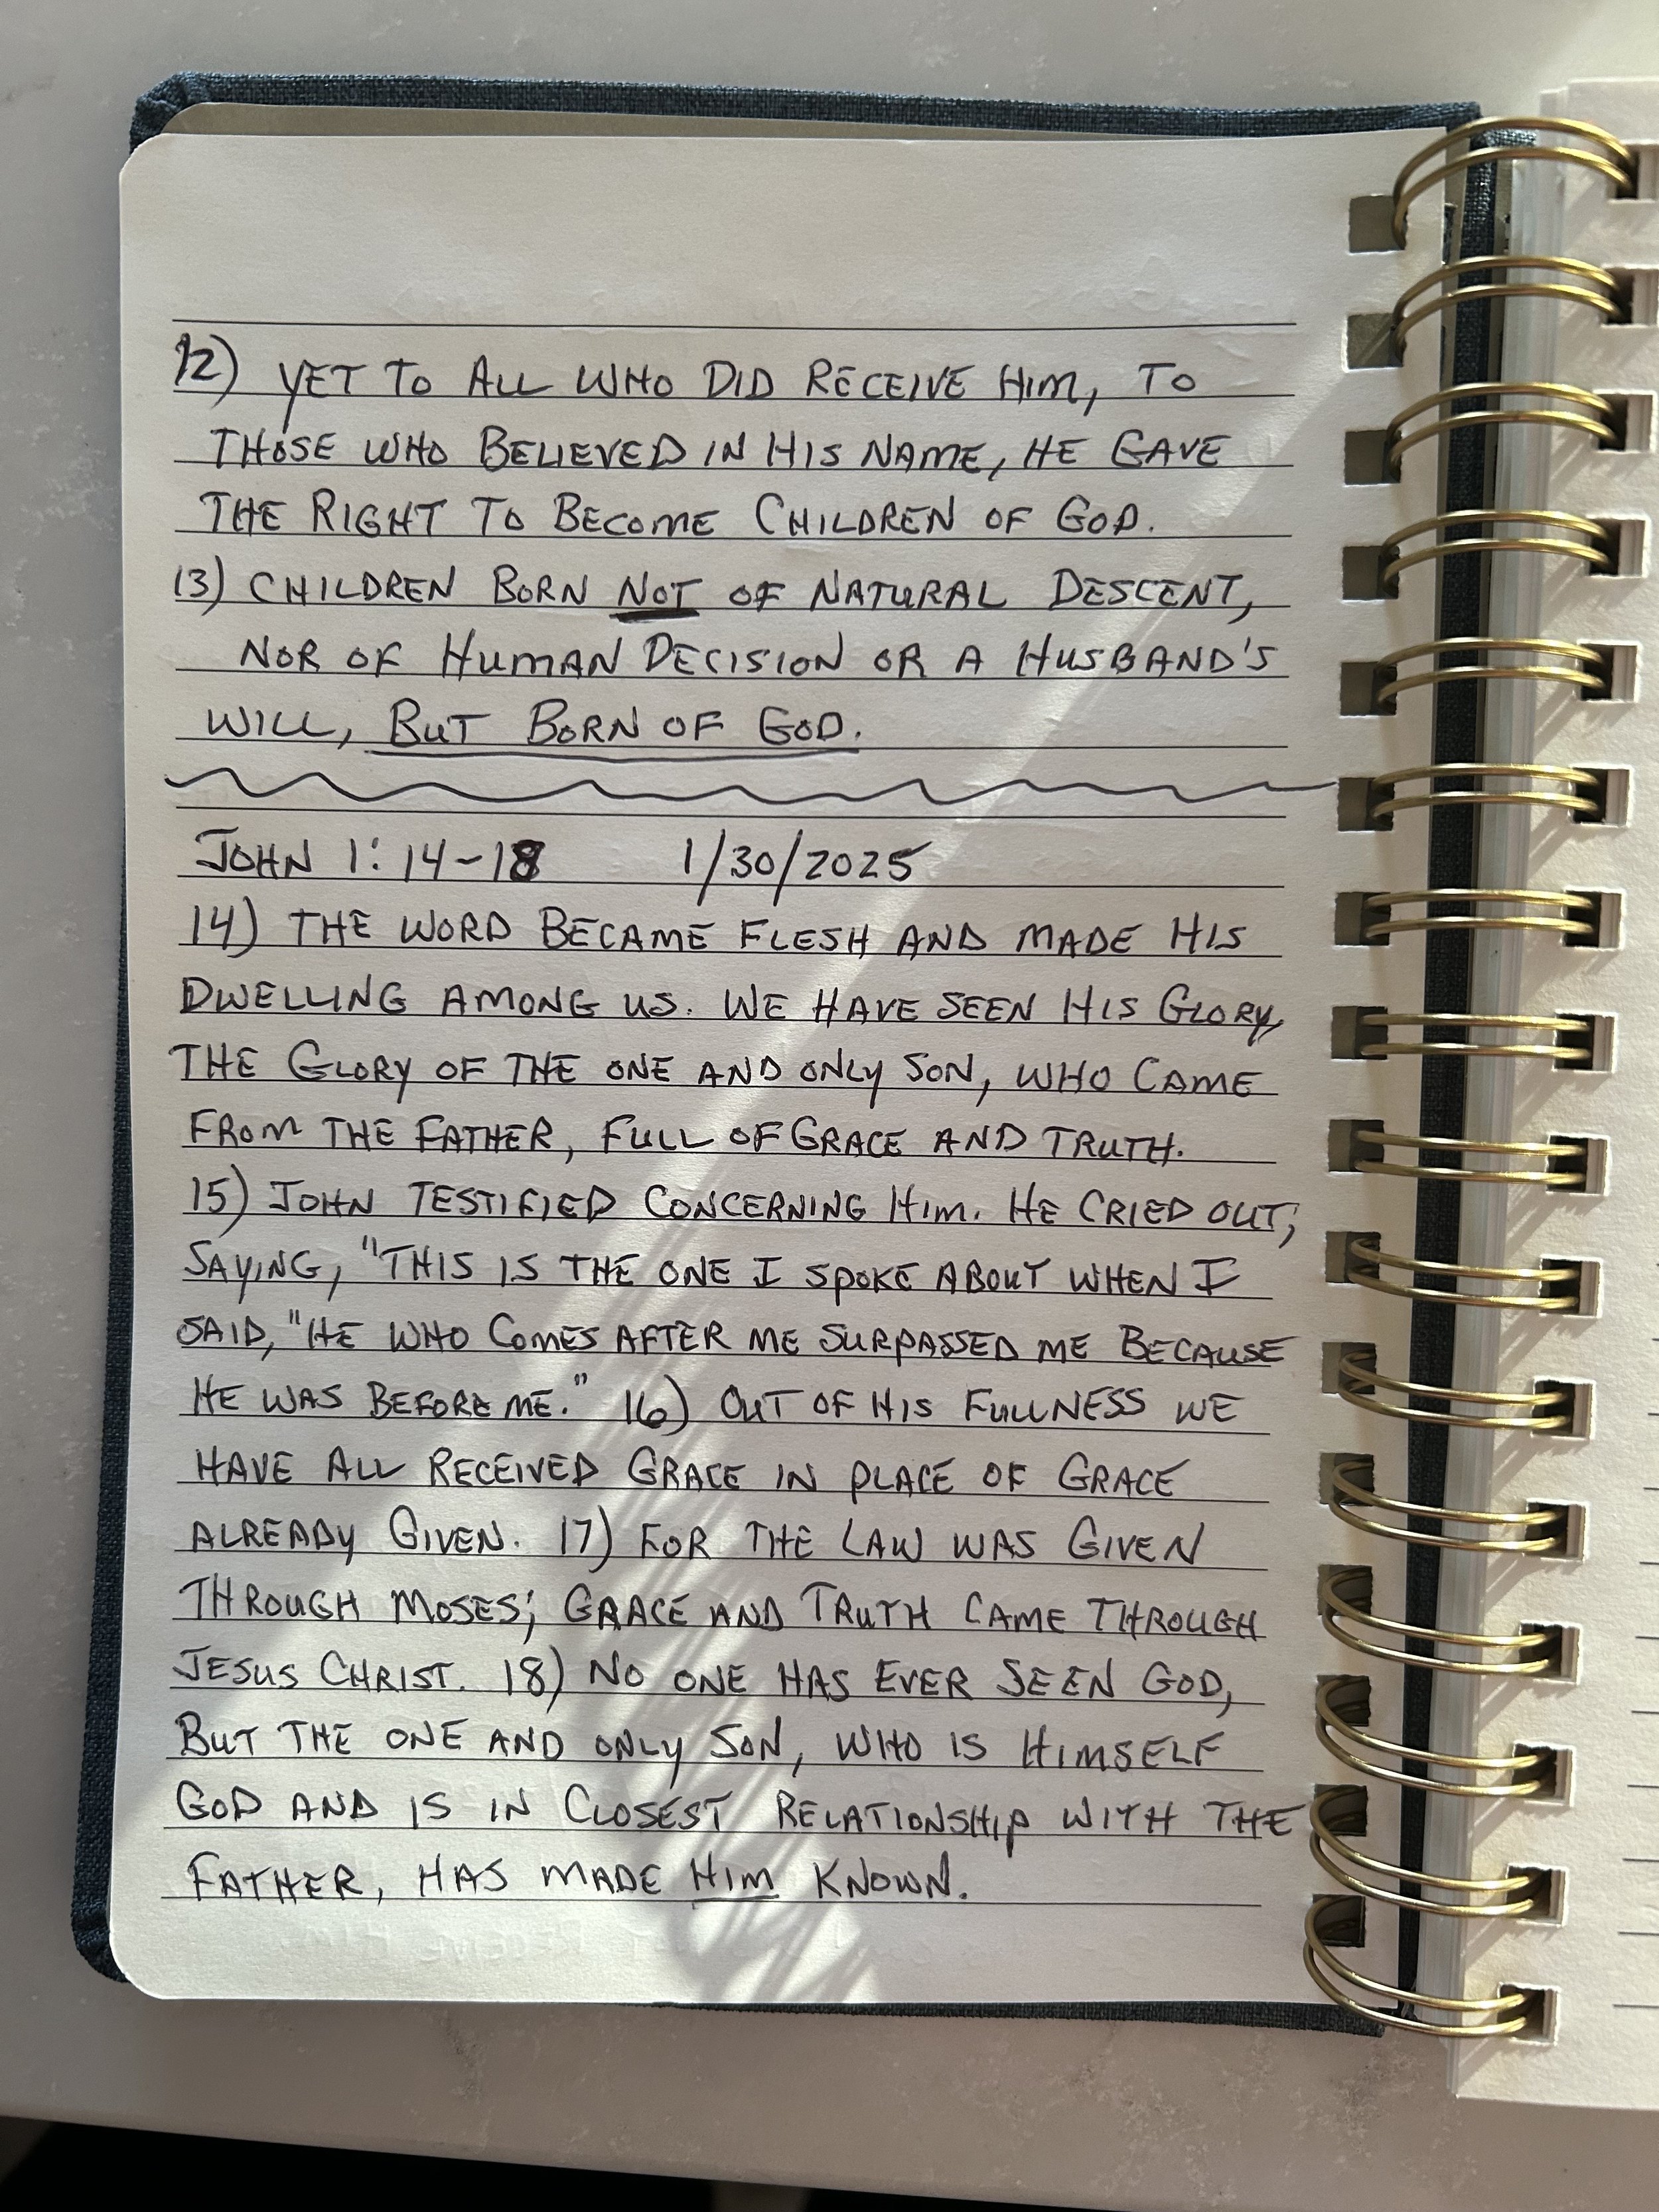 12) YET TO ALL WHO DID RECEIVE HIM, TO
THOSE WHO BELIEVED IN HIS NAME, HE GAVE
THE RIGHT TO BECOME CHILDREN OF GOD.
13) CHILDREN BORN NOT OF NATURAL DESCENT,
NOR OF HUMAN DECISION OR A HUSBAND'S
WILL, BUT BORN OF GOD.
JOHN 1:14-18 1/30/2025
14) THE WORD BECAME FLESH AND MADE HIS
DWELLING AMONG US. WE HAVE SEEN HIS GLORY,
THE GLORY OF THE ONE AND ONLY SON, WHO CAME
FROM THE FATHER, FULL OF GRACE AND TRUTH.
15) JOHN TESTIFIED CONCERNING HIM. HE CRIED OUT,
SAYING, "THIS IS THE ONE I SPOKE ABOUT WHEN I
SAID, "HE WHO COMES AFTER ME SURPASSED ME BECAUSE
HE WAS BEFORE ME." 16) OUT OF HIS FULLNESS WE
HAVE ALL RECEIVED GRACE IN PLACE OF GRACE
ALREADY GIVEN. 17) FOR THE LAW WAS GIVEN
THROUGH MOSES; GRACE AND TRUTH CAME THROUGH
JESUS CHRIST. 18) NO ONE HAS EVER SEEN GOD,
BUT THE ONE AND ONLY SON, WHO IS HIMSELF
GOD AND IS IN CLOSEST RELATIONSHIP WITH THE
FATHER, HAS MADE HIM KNOWN.